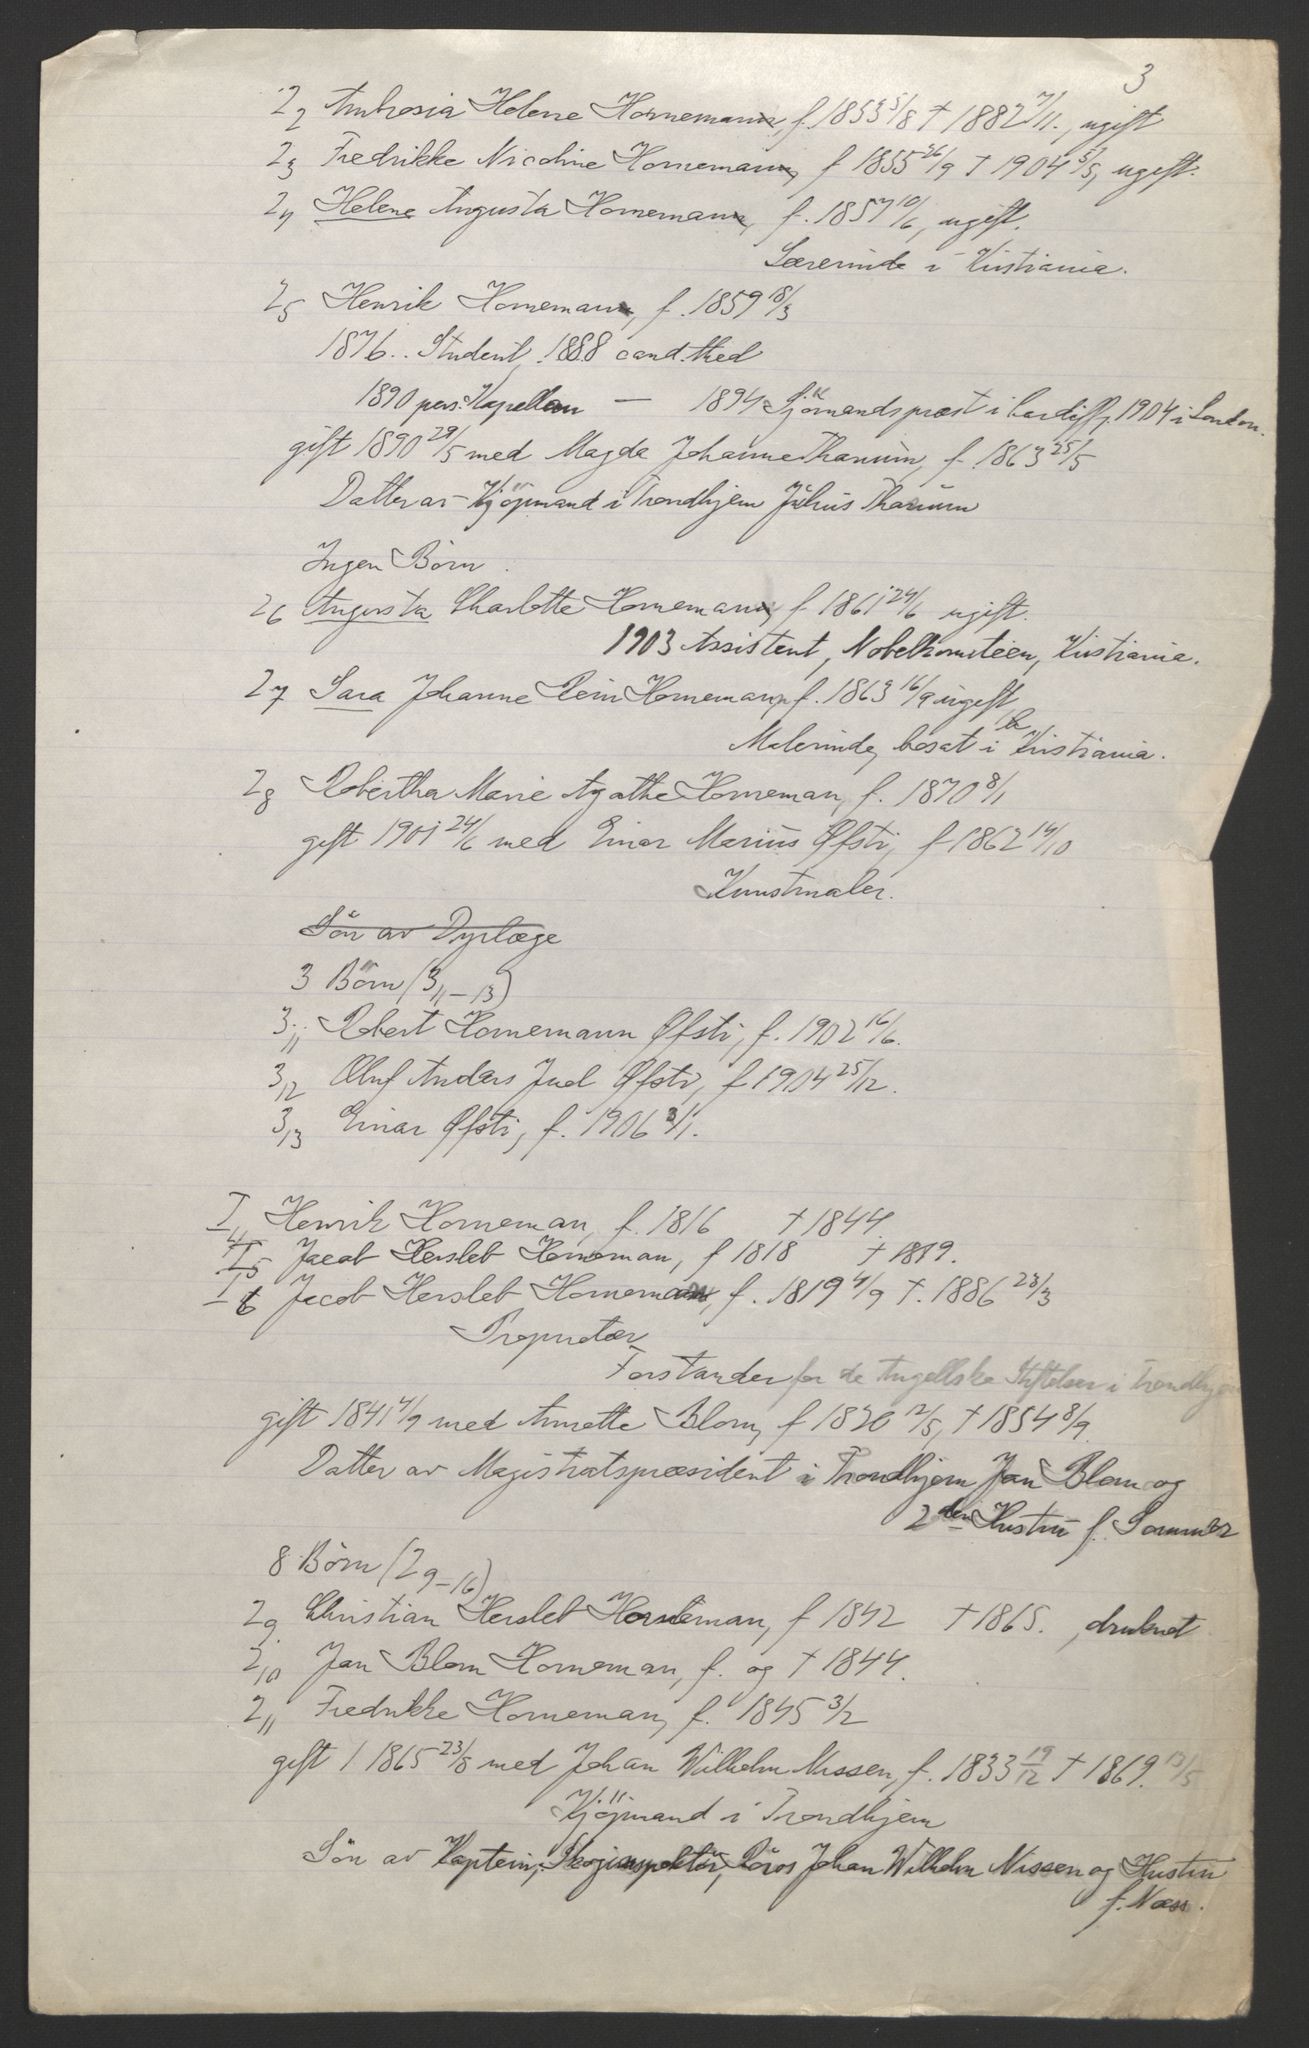 3
2 2 Ambrosia Helene Horneman, f. 1853 5/8 † 1882 7/11., ugift
2 3 Fredrikke Nicoline Horneman, f 1855 26/9 † 1904 5/5, ugift.
2 4 Helene Augusta Horneman, f. 1857 10/6, ugift.
Lærerinde i Kristiania.
2 5 Henrik Horneman, f. 1859 18/3
1876. Student, 1888 cand. theol
1890 pers. Kapellan — 1894 Sjömandsprest i Cardiff, 1904 i London.
gift 1890 29/5 med Magda Johanne Thaulow, f. 1863 25/5
Datter av Kjöpmand i Trondhjem Julius
Ingen Börn.
2 6 Augusta Charlotte Horneman, f 1861 24/6 ugift.
1903 Assistent, Nobelkomitéen, Kristiania.
2 7 Sara Johanne Rein Horneman, f. 1863 16/9 ugift,
Malerinde, bosat i Kristiania.
2 8 Robertha Marie Agathe Horneman, f. 1870 8/1
gift 1901 24/6 med Einar Marius Øfsti, f 1862 14/10
Kunstmaler.
Sön av Dyrlæge
3 Börn (3 11–13)
3 11 Robert Hornemann Øfsti, f. 1902 16/6.
3 12 Oluf Anders Juel Øfsti, f 1904 25/12.
3 13 Einar Øfsti, f. 1906 3/1.
I 4 Henrik Horneman, f. 1816 † 1844.
I 5 Jacob Herslet Horneman, f 1818 † 1819.
I 6 Jacob Herslet Horneman, f. 1819 4/9 †. 1886 23/3
Proprietær
Forstander for de Angellske Stiftelser i Trondhjem
gift 1841 4/9 med Annette Blom, f 1820 12/5, † 1854 8/9.
Datter av Magistratspræsident i Trondhjem Jan Blom og
2den Hustru f. Sommer
8 Börn (2 9–16)
2 9 Christian Herslet Horneman, f 1842 † 1865., druknet
2 10 Jan Blom Horneman, f. og † 1844.
2 11 Fredrikke Horneman, f. 1845 3/2
gift 1 1865 23/8 med Johan Wilhelm Nissen, f. 1833 19/12 † 1869. 13/5
Kjöpmand i Trondhjem
Sön av Kaptein, Skoginspektör, Röros Johan Wilhelm Nissen og Hustru
f. Næss.